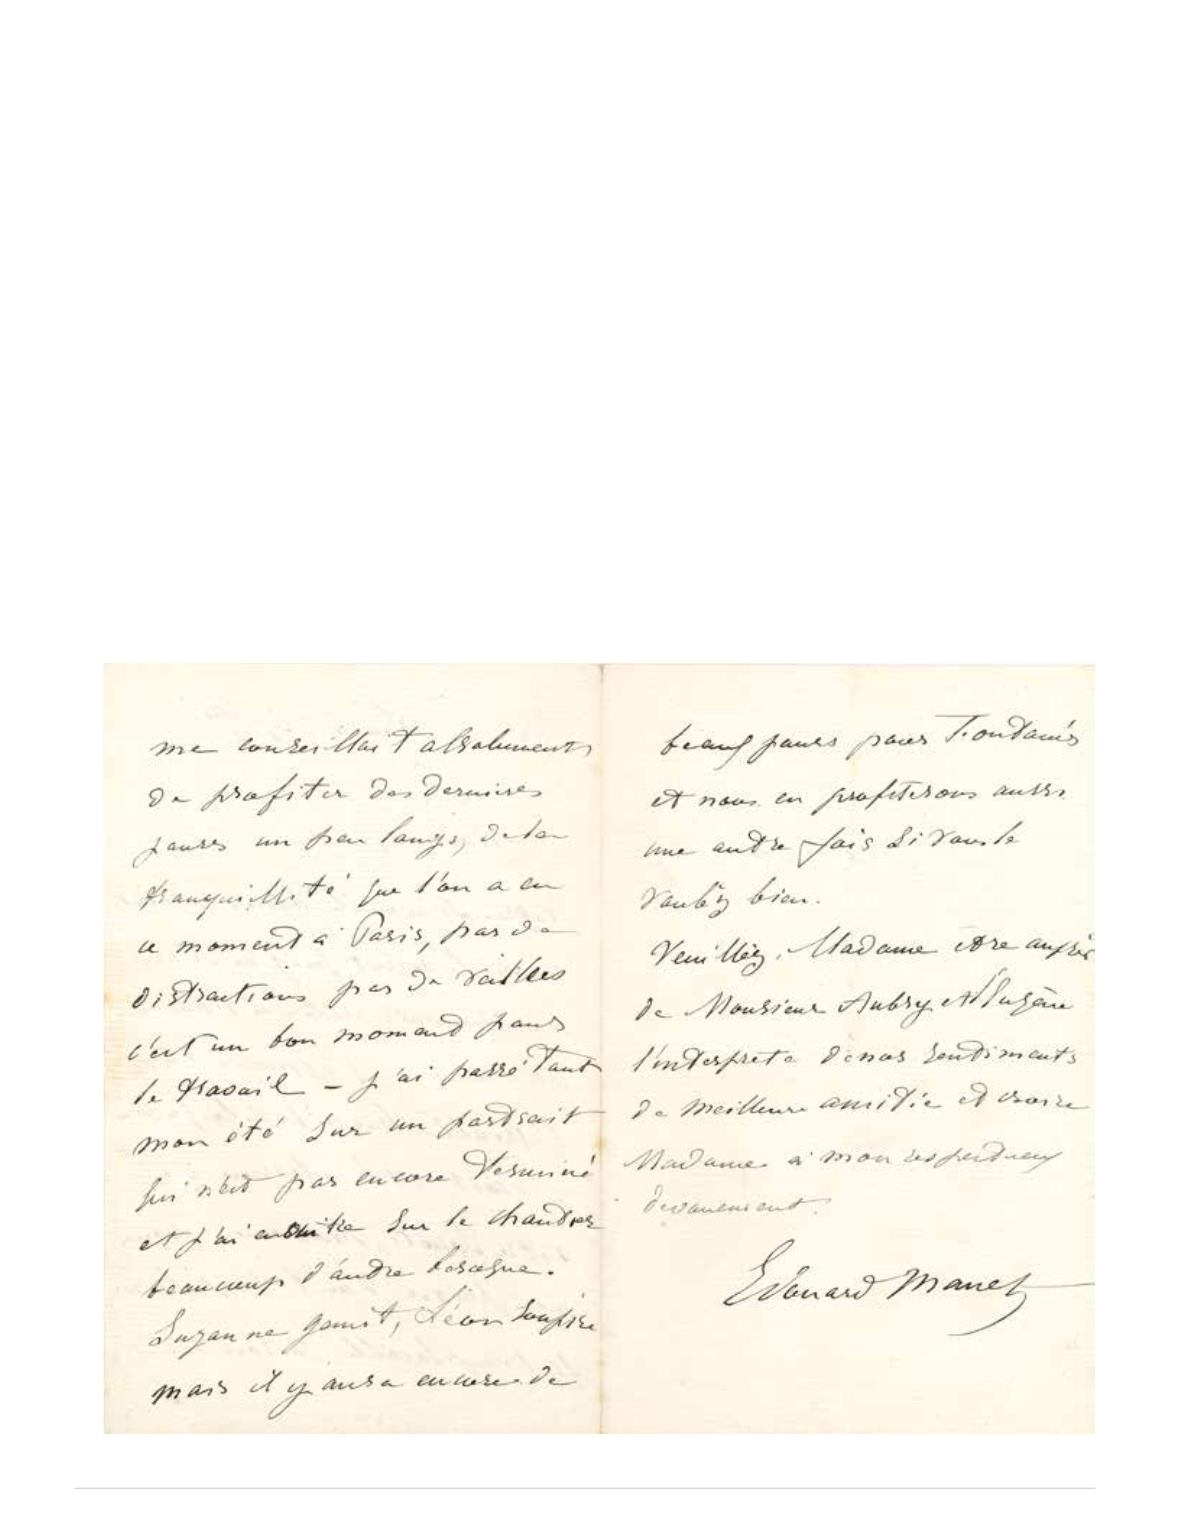 me conseillait absolument
de profiter des derniers
jours un peu longs, de la
tranquillité que l'on a en
ce moment à Paris, pas de
distractions pas de veilles
c'est un bon moment pour
le travail – j'ai passé tout
mon été sur un portrait
qui n'est pas encore terminé
et j'ai ensuite sur le chantier
beaucoup d'autre besogne.
Suzanne gémit, Léon soupire
mais il y aura encore de
beaux jours pour
et nous en profiterons aussi
une autre fois si vous le
voulez bien.
Veuillez, Madame être auprès
de Monsieur Aubry et d'Eugène
l'interprète de nos sentiments
de meilleure amitié et croire
Madame à mon respectueux
dévouement.
Edouard Manet